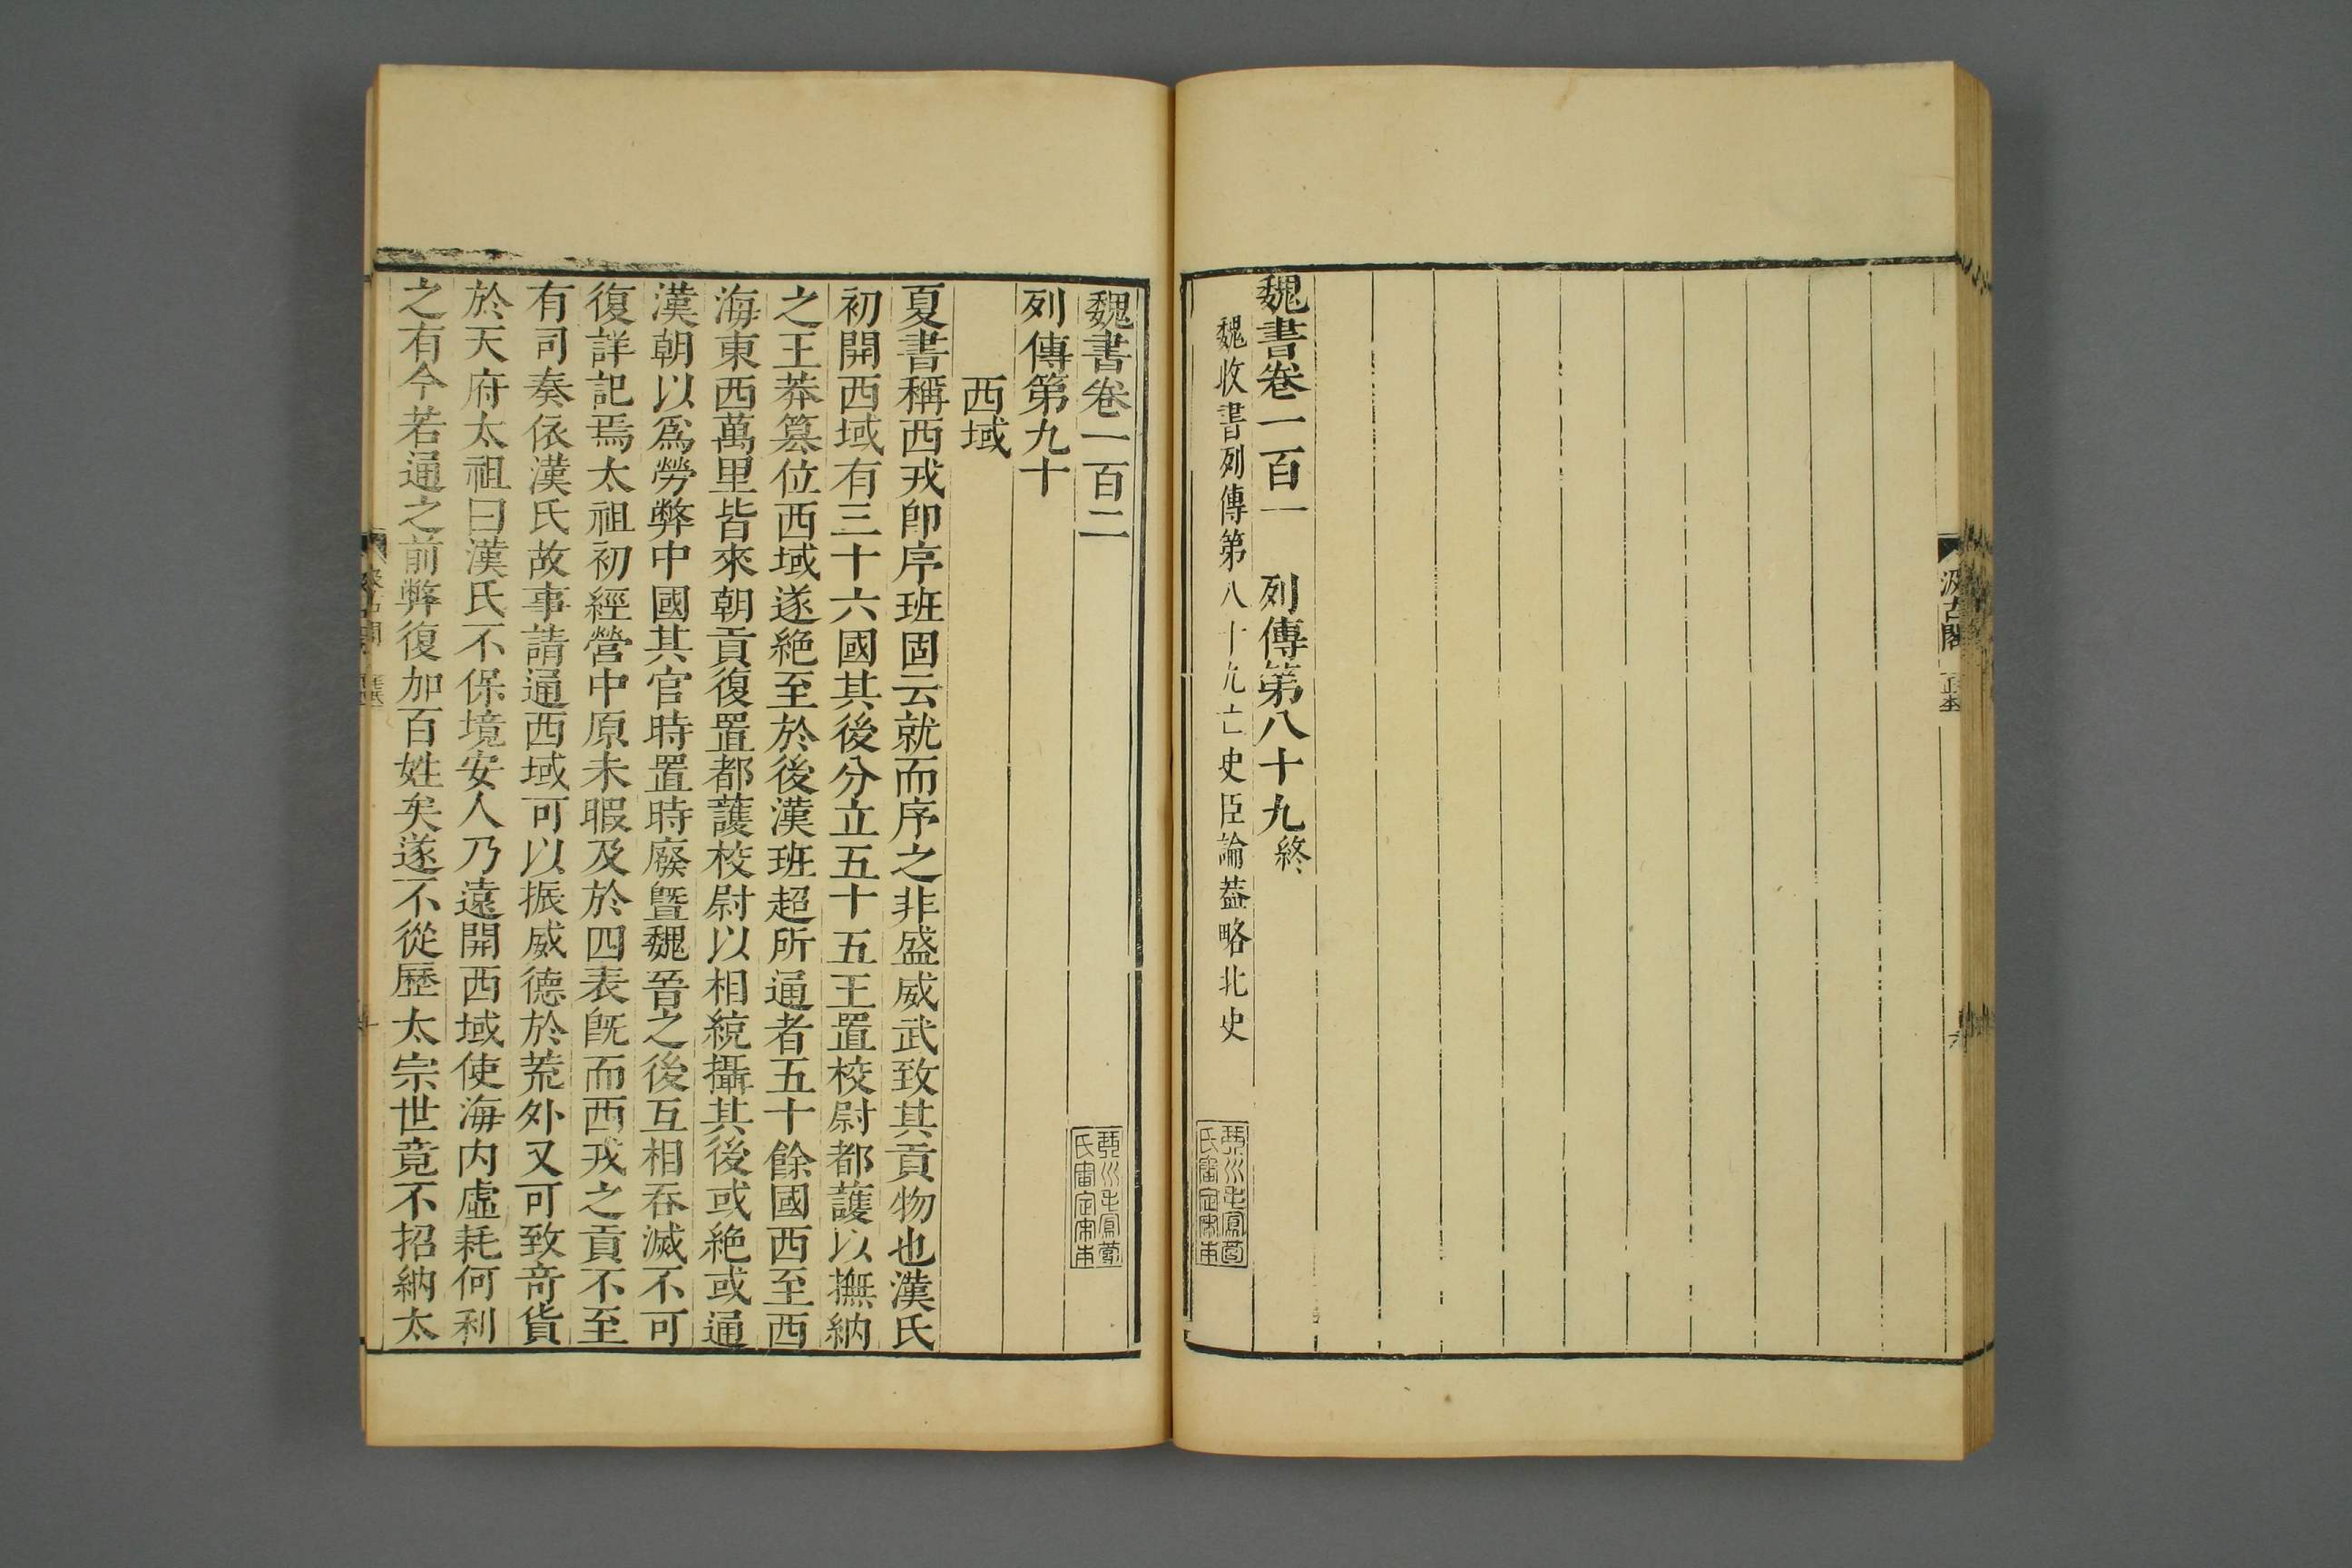 汲古閣
魏書卷一百一 列傳第八十九終
魏收書列傳第八十九亡史臣論葢略北史
琴川毛鳳苞
氏審定宋本
魏書卷一百二
琴川毛鳳苞
氏審定宋本
列傳第九十
西域
夏書稱西戎卽序班固云就而序之非盛威武致其貢物也漢氏
初開西域有三十六國其後分立五十五王置校尉都護以撫納
之王莽篡位西域遂絶至於後漢班超所通者五十餘國西至西
海東西萬里皆來朝貢復置都護校尉以相統攝其後或絶或通
漢朝以爲勞弊中國其官時置時廢暨魏晉之後互相吞滅不可
復詳記焉太祖初經營中原未暇及於四表旣而西戎之貢不至
有司奏依漢氏故事請通西域可以振威德於荒外又可致奇貨
於天府太祖曰漢氏不保境安人乃遠開西域使海内虛耗何利
之有今若通之前弊復加百姓矣遂不從歷太宗世竟不招納太